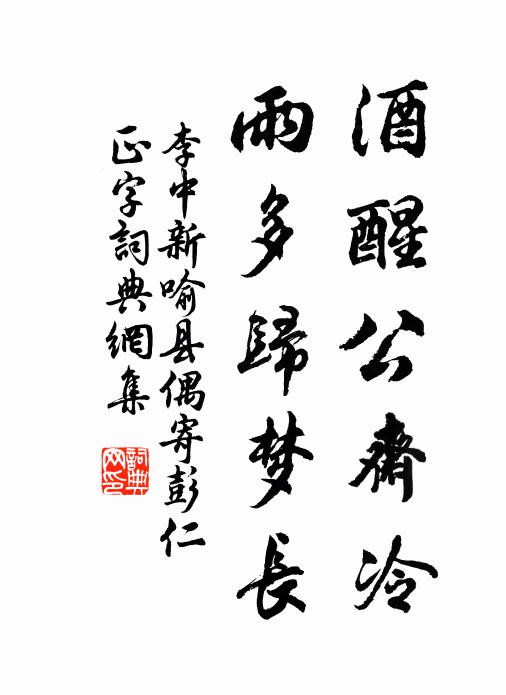 酒醒公齋冷
雨多歸梦長
李中新喻县偶寄彭仁
正字詞典網集
詞典
网印